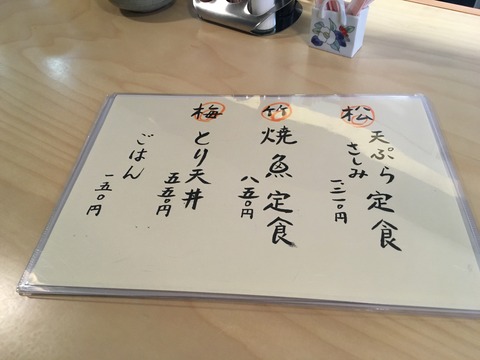 松
天ぷら定食
さしみ
一三一〇円
竹
焼魚定食
八五〇円
梅
とり天丼
五五〇円
ごはん
一五〇円